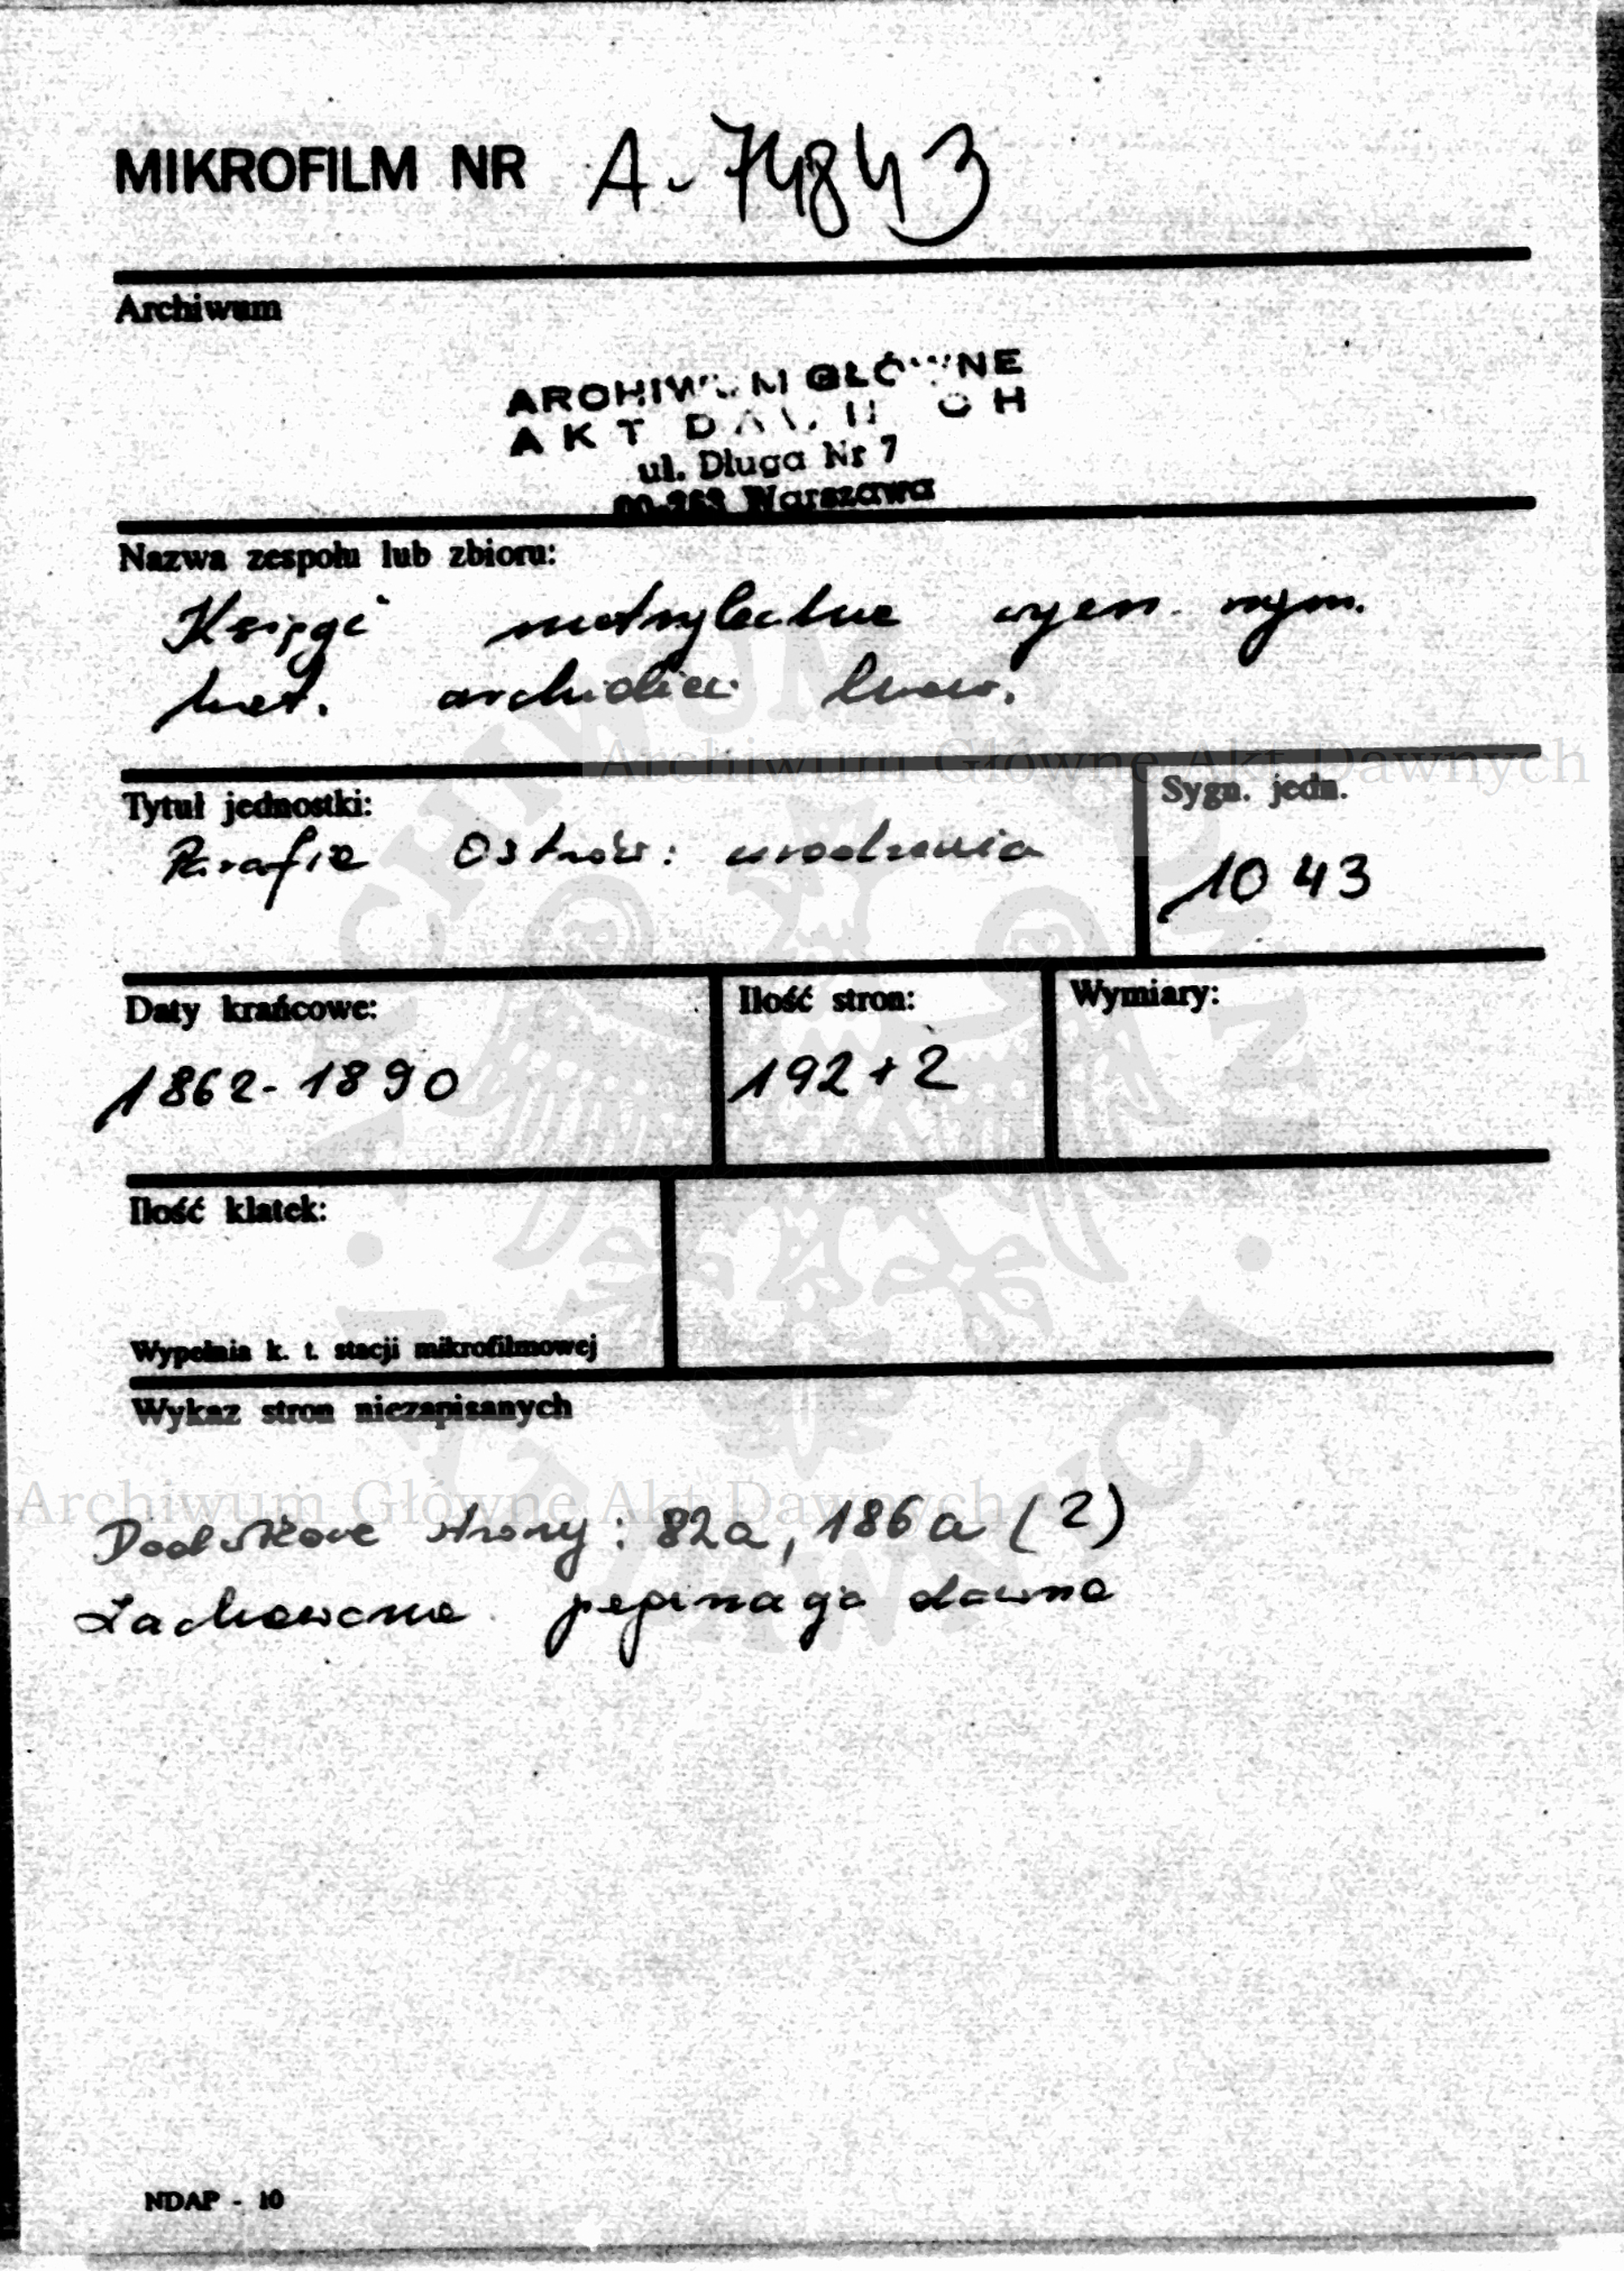 MIKROFILM NR A-74843
Archiwum
ARCHIWUM GŁÓWNE
AKT DAWNYCH
ul. Długa Nr 7
00-263 Warszawa
Nazwa zespołu lub zbioru:
Księgi metrykalne wyzn. rzym.
kat. archidiec. lwow.
Archiwum Główne Akt Dawnych
Tytuł jednostki:
Sygn. jedn.
Parafia Ostrów: urodzenia
1043
Daty krańcowe:
Ilość stron:
Wymiary:
1862-1890
192+2
Ilość klatek:
Wypełnia k. t. stacji mikrofilmowej
Wykaz stron niezapisanych
Archiwum Główne Akt Dawnych
Dodatkowe strony: 82a, 186a (2)
Zachowano paginację dawną
NDAP - 10